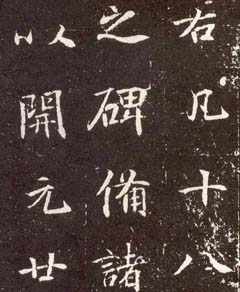 右凡十八
之碑備諸
以開元廿